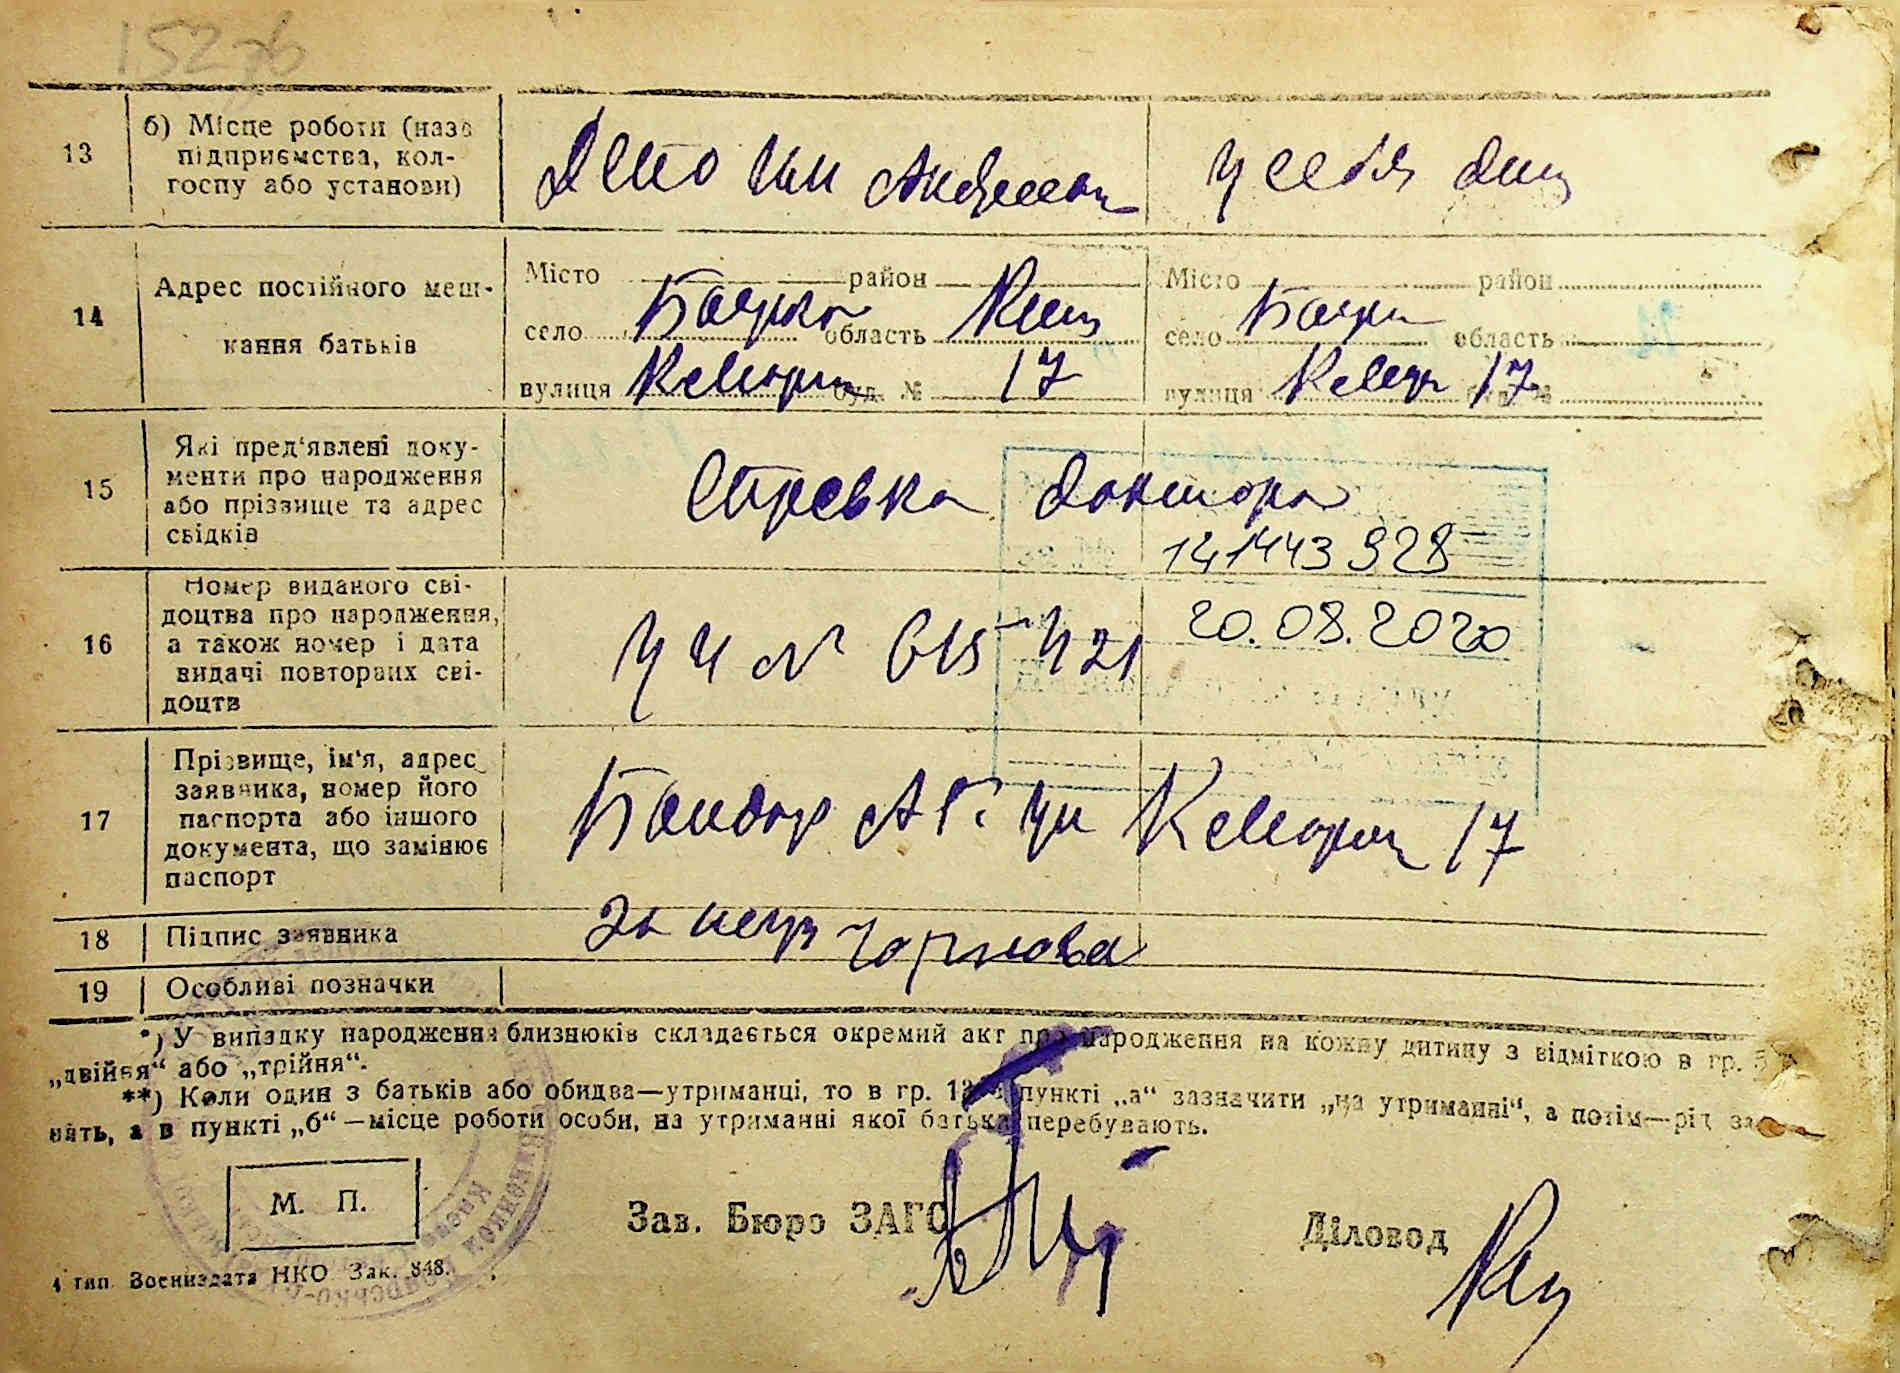 13
б) Місце роботи (назв
підприємства, кол-
госпу або установи)
Депо им Андреева
у себя дом
14
Адрес постійного меш-
кання батьків
Місто район
село Боярка область Киев
вулиця буд. № 17
Місто район
село Боярк область
вулиця буд. № 17
15
Які пред'явлені доку-
менти про народження
або прізвище та адрес
свідків
Справка доктора
141443 928
16
Номер виданого сві-
доцтва про народження,
а також номер і дата
видачі повторних сві-
доцтв
20.08.2020
17
Прізвище, ім'я, адрес
заявника, номер його
паспорта або іншого
документа, що замінює
паспорт
17
18 Підпис заявника
19 Особливі позначки
*) У випадку народження близнюків складається окремий акт про народження на кожну дитину з відміткою в гр. 5
„двійня“ або „трійня“.
**) Коли один з батьків або обидва—утриманці, то в гр. 13 пункті „а“ зазначити „на утриманні“, а потім—рід за-
нять, а в пункті „б“—місце роботи особи, на утриманні якої батьки перебувають.
М. П.
Зав. Бюро ЗАГС
Діловод
4 тип. Воениздата НКО Зак. 848.